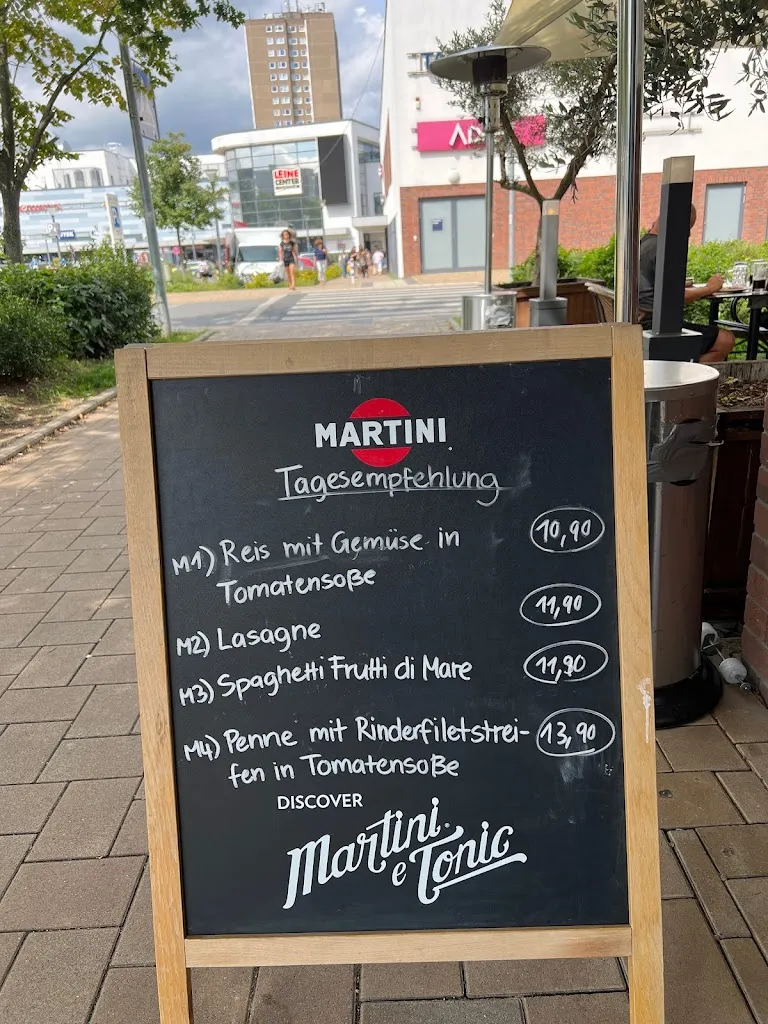 LEINE
CENTER
MARTINI
Tagesempfehlung
M1) Reis mit Gemüse in 10,90
Tomatensoße
11,90
M2) Lasagne
M3) Spaghetti Frutti di Mare 11,90
M4) Penne mit Rinderfiletstrei- 13,90
fen in Tomatensoße
DISCOVER
Martini
e Tonic